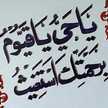 يا حي يا قيوم
برحمتك استغيث